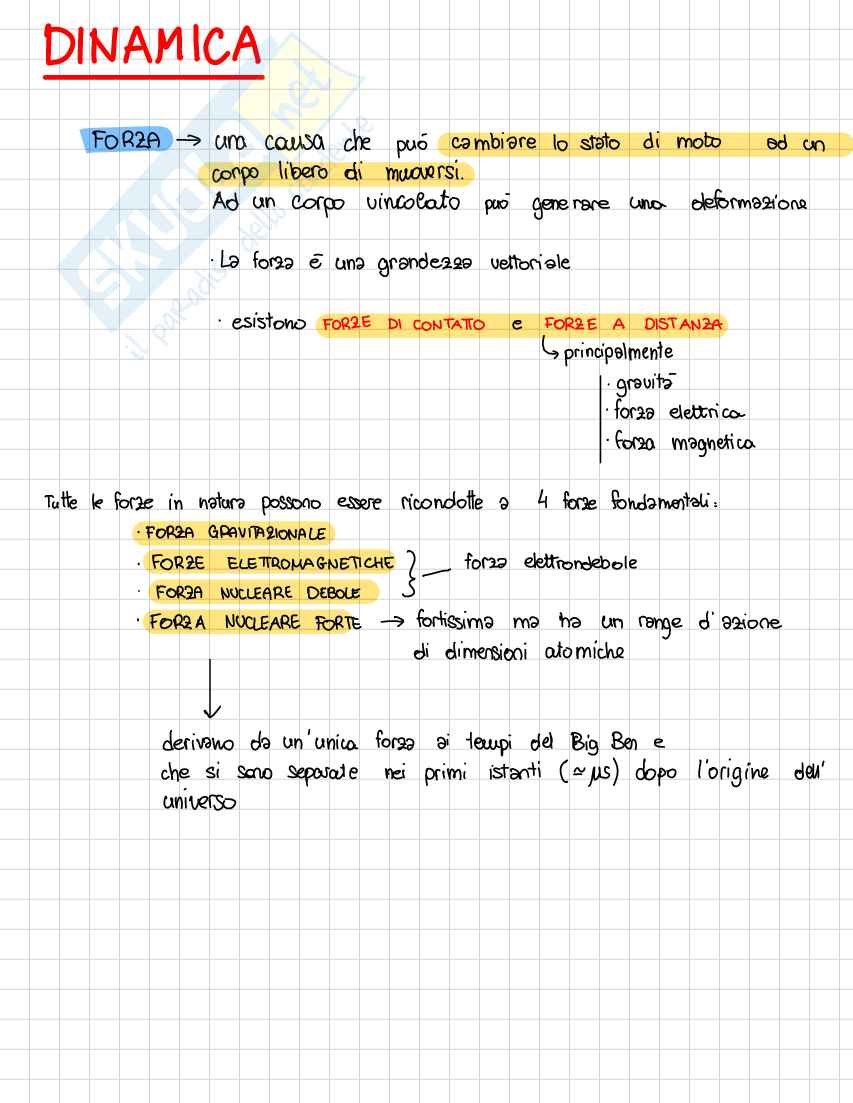 DINAMICA
FORZA → una causa che può cambiare lo stato di moto ad un
corpo libero di muoversi.
Ad un corpo vincolato può generare una deformazione
· La forza è una grandezza vettoriale
· esistono FORZE DI CONTATTO e FORZE A DISTANZA
↳ principalmente
· gravità
· forza elettrica
· forza magnetica
Tutte le forze in natura possono essere ricondotte a 4 forze fondamentali:
· FORZA GRAVITAZIONALE
· FORZE ELETTROMAGNETICHE } — forza elettrondebole
· FORZA NUCLEARE DEBOLE
· FORZA NUCLEARE FORTE → fortissima ma ha un range d'azione
di dimensioni atomiche
derivano da un'unica forza ai tempi del Big Ben e
che si sono separate nei primi istanti (≃ μs) dopo l'origine dell'
universo